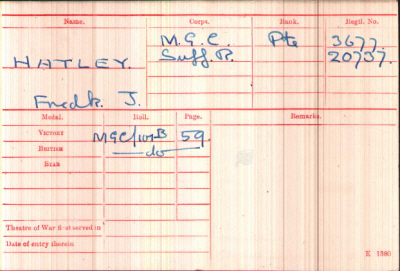 Name. Corps. Rank. Regtl. No.
M.G.C. Pte 3677.
HATLEY. Suff.R. 20737.
Fredk. J.
Medal. Roll. Page. Remarks.
VICTORY MGC/101B 59.
BRITISH do
STAR
Theatre of War first served in
Date of entry therein
K 1380